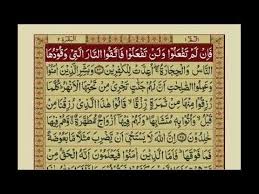 فَاِنْ لَّمْ تَفْعَلُوْا وَلَنْ تَفْعَلُوْا فَاتَّقُوا النَّارَ الَّتِيْ وَقُوْدُهَا
النَّاسُ وَالْحِجَارَةُ اُعِدَّتْ لِلْكٰفِرِيْنَ وَبَشِّرِ الَّذِيْنَ اٰمَنُوْا
وَعَمِلُوا الصّٰلِحٰتِ اَنَّ لَهُمْ جَنّٰتٍ تَجْرِيْ مِنْ تَحْتِهَا الْاَنْهٰرُ كُلَّمَا
رُزِقُوْا مِنْهَا مِنْ ثَمَرَةٍ رِّزْقًا قَالُوْا هٰذَا الَّذِيْ رُزِقْنَا مِنْ قَبْلُ
وَاُتُوْا بِهٖ مُتَشَابِهًا وَلَهُمْ فِيْهَا اَزْوَاجٌ مُّطَهَّرَةٌ وَّهُمْ فِيْهَا
خٰلِدُوْنَ اِنَّ اللّٰهَ لَا يَسْتَحْيٖ اَنْ يَّضْرِبَ مَثَلًا مَّا بَعُوْضَةً
فَمَا فَوْقَهَا فَاَمَّا الَّذِيْنَ اٰمَنُوْا فَيَعْلَمُوْنَ اَنَّهُ الْحَقُّ مِنْ